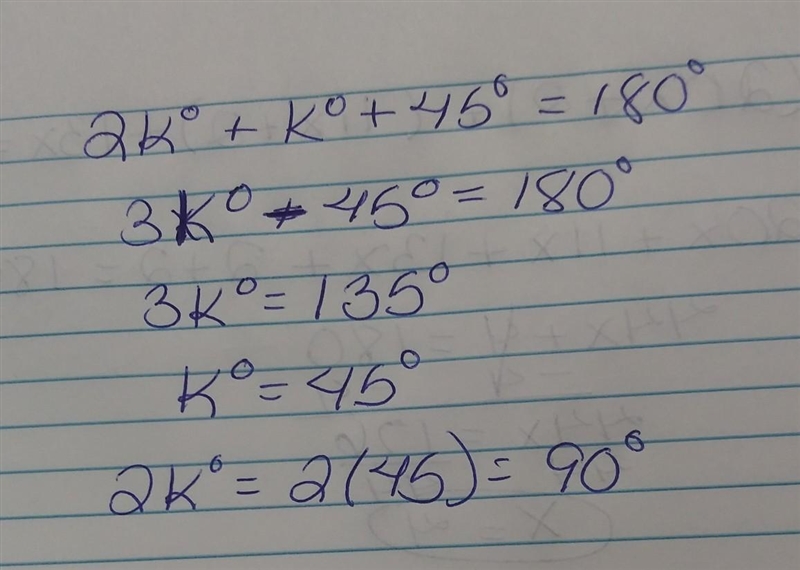 2K° + K° + 45° = 180°
3K° + 45° = 180°
3K° = 135°
K° = 45°
2K° = 2(45) = 90°